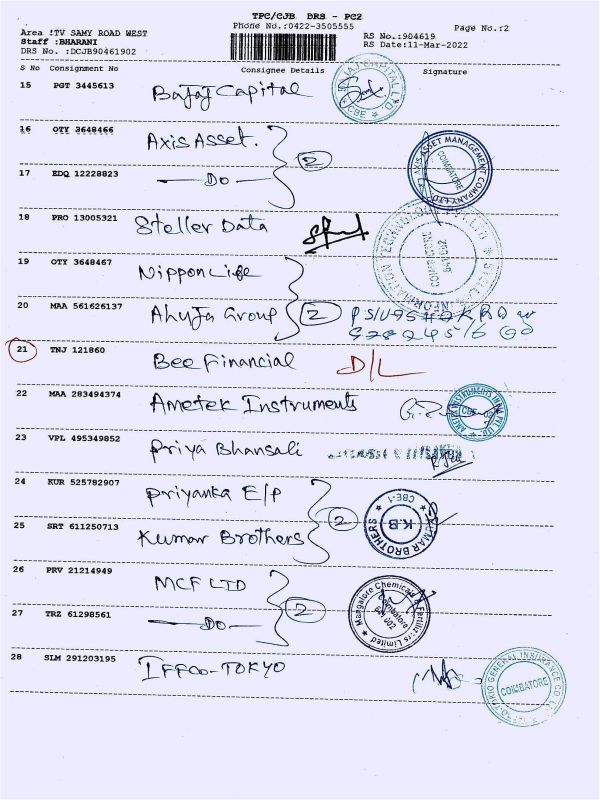 TPC/CJB DRS - PC2
Phone No.:0422-3505555
Page No.:2
Area !TV SAMY ROAD WEST
Staff :BHARANI
DRS No. :DCJB90461902
RS No.:904619
RS Date:11-Mar-2022
S No Consignment No Consignee Details Signature
15 PGT 3445613 Bajaj Capital
BAJAJ CAPITAL LTD
CBE
16 OTY 3648466 Axis Asset.
2
17 EDQ 12228823 — Do —
AXIS ASSET MANAGEMENT COMPANY LTD
COIMBATORE
18 PRO 13005321 Steller Data
19 OTY 3648467 Nippon Life
20 MAA 561626137 Ahuja Group
2
21 TNJ 121860 Bee Financial D/L
22 MAA 283494374 Ametek Instruments
CBE
23 VPL 495349852 Priya Bhansali
24 KUR 525782907 Priyanka E/P
2
25 SRT 611250713 Kumar Brothers
KUMAR BROTHERS
K.B
CBE-1
26 PRV 21214949 MCF LTD
2
27 TRZ 61298561 — Do —
Mangalore Chemicals & Fertilizers Limited
Coimbatore
28 SLM 291203195 IFFCO-TOKYO
IFFCO-TOKIO GENERAL INSURANCE CO LTD
COIMBATORE